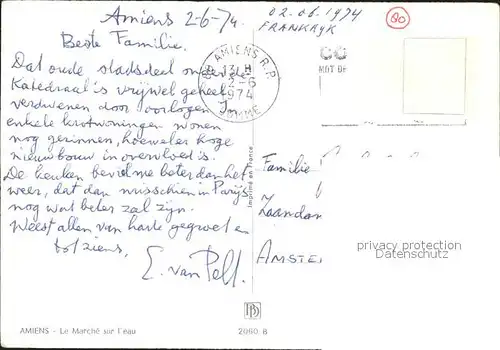 Amiens 2-6-74
02.06.1974
FRANKRYK
80
Beste Familie.
Dat oude stadsdeel onder de
Katedraal is vrijwel geheel
verdwenen door oorlogen. In
enkele krotwoningen wonen
nog gezinnen, hoewel er hoge
nieuwbouw in overvloed is.
De keuken bevol me beter dan het
weer, dat dan misschien in Parijs
nog wat beter zal zijn.
Weest allen van harte gegroet en
tot ziens,
E. van Pelt.
80 AMIENS R.P.
13 H
2-6
1974
SOMME
MOT DE
Imprimé en France
Familie
Zaandam
AMSTE
privacy protection
Datenschutz
AMIENS - Le Marché sur l'eau
2060 B